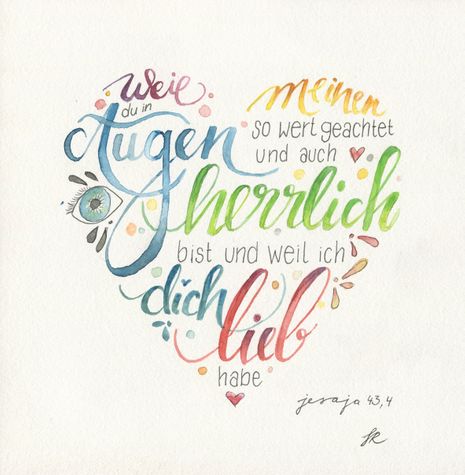 Weil
du in
meinen
Augen
so wert geachtet
und auch
herrlich
bist und weil ich
dich
lieb
habe
jesaja 43,4